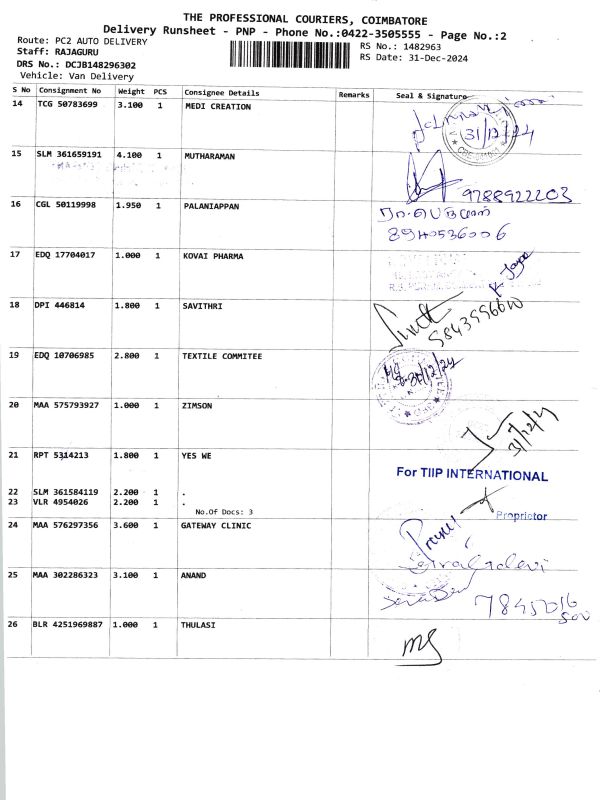 THE PROFESSIONAL COURIERS, COIMBATORE
Delivery Runsheet - PNP - Phone No.:0422-3505555 - Page No.:2
Route: PC2 AUTO DELIVERY
RS No.: 1482963
Staff: RAJAGURU
RS Date: 31-Dec-2024
DRS No.: DCJB148296302
Vehicle: Van Delivery
S No Consignment No Weight PCS Consignee Details Remarks Seal & Signature
14 TCG 50783699 3.100 1 MEDI CREATION
31/12/24
15 SLM 361659191 4.100 1 MUTHARAMAN
9788922203
16 CGL 50119998 1.950 1 PALANIAPPAN
8940536006
17 EDQ 17704017 1.000 1 KOVAI PHARMA
18 DPI 446814 1.800 1 SAVITHRI
19 EDQ 10706985 2.800 1 TEXTILE COMMITEE
20 MAA 575793927 1.000 1 ZIMSON
31/12/24
21 RPT 5314213 1.800 1 YES WE
For TIIP INTERNATIONAL
22 SLM 361584119 2.200 1 .
23 VLR 4954026 2.200 1 .
No.Of Docs: 3
Proprietor
24 MAA 576297356 3.600 1 GATEWAY CLINIC
25 MAA 302286323 3.100 1 ANAND
26 BLR 4251969887 1.000 1 THULASI